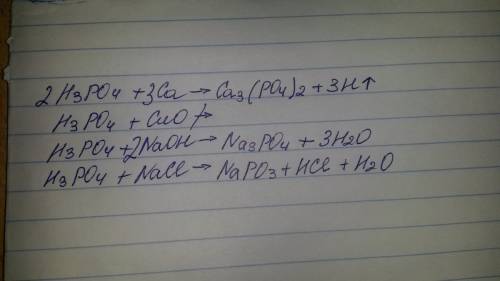 2H₃PO₄ + 3Ca → Ca₃(PO₄)₂ + 3H↑
H₃PO₄ + CuO ↛
H₃PO₄ + 2NaOH → Na₃PO₄ + 3H₂O
H₃PO₄ + NaCl → NaPO₃ + HCl + H₂O